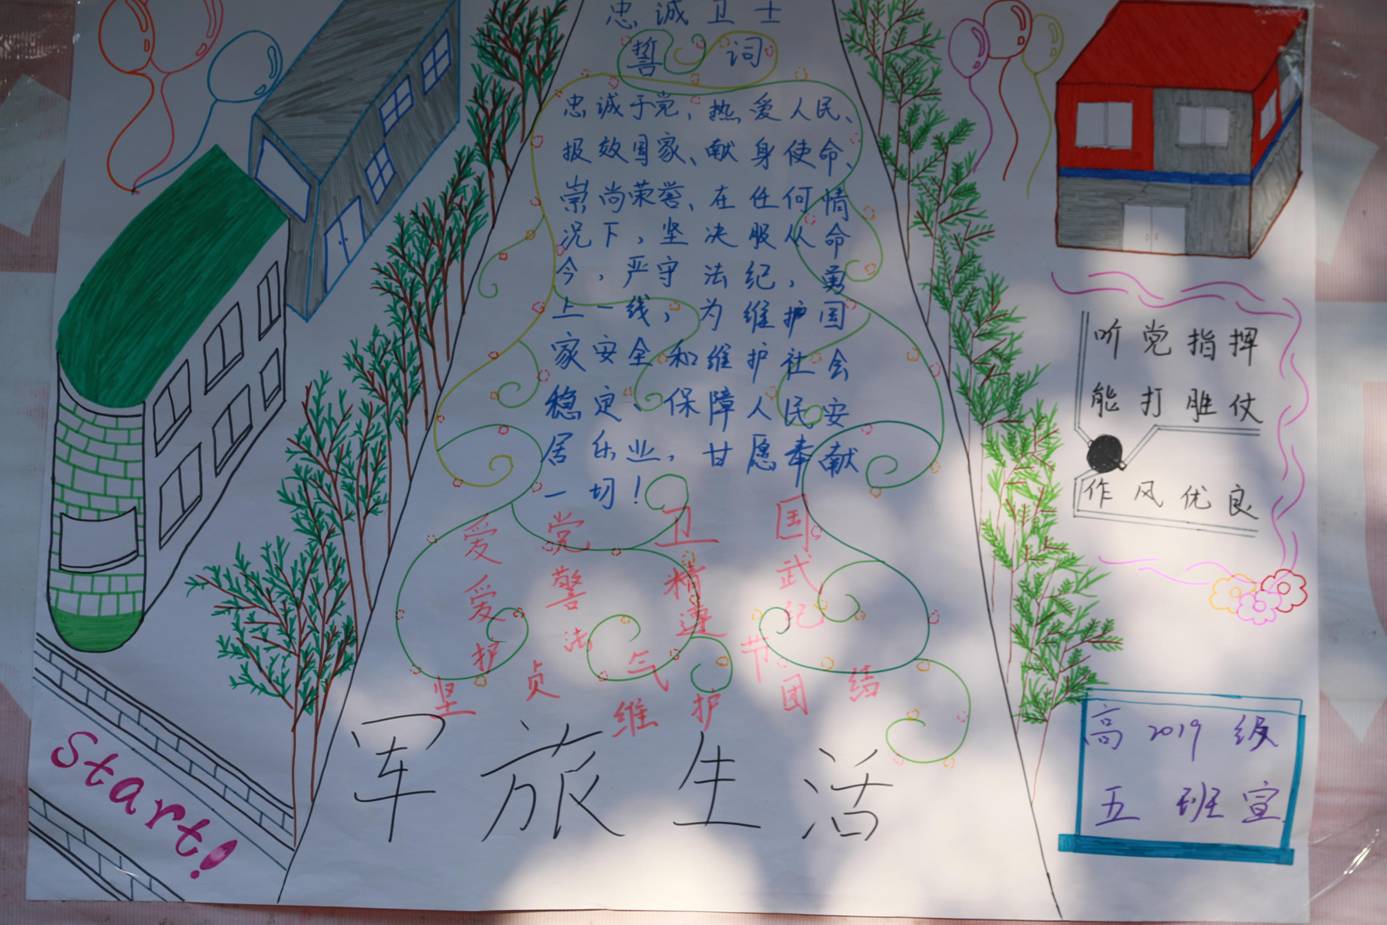 忠诚卫士
誓词
忠诚于党、热爱人民、
报效国家、献身使命、
崇尚荣誉、在任何情
况下，坚决服从命
令，严守法纪，勇
上一线，为维护国
家安全和维护社会
稳定、保障人民安
居乐业，甘愿奉献
一切！
爱党卫国
爱警精武
护法遵纪
坚贞气节
维护团结
军旅生活
Start!
听党指挥
能打胜仗
作风优良
高2019级
五班宣